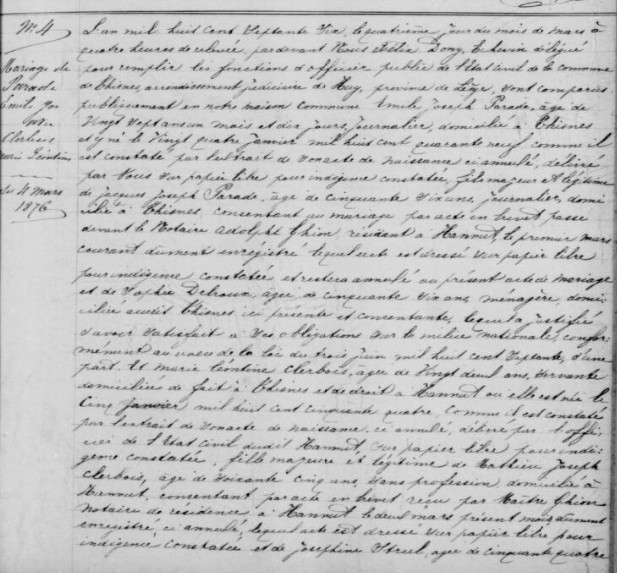 N° 4
Mariage de
Parade
Emile Jos
avec
Clerbois
Marie Léontine
Du 4 Mars
1876
L'an mil huit cent septante six, le quatrième jour du mois de mars à
quatre heures de relevée, pardevant Nous Félix Dony, Echevin délégué
pour remplir les fonctions d'officier public de l'Etat civil de la commune
de Thisnes, arrondissement judiciaire de Huy, province de Liège, sont comparus
publiquement en notre maison commune Emile Joseph Parade, âgé de
vingt sept ans un mois et dix jours, journalier, domicilié à Thisnes
et y né le vingt quatre janvier mil huit cent quarante neuf comme il
est constaté par l'extrait de son acte de naissance ci annulé, délivré
par Nous sur papier libre pour indigence constatée, fils majeur et légitime
de jacques Joseph Parade, âgé de cinquante six ans, journalier, domi
cilié à Thisnes, consentant au mariage par acte en brevet passé
devant le Notaire Adolphe Ghion, résidant à Hannut, le premier mars
courant dument enregistré lequel acte est dressé sur papier libre
pour indigence constatée et restera annulé au présent acte de mariage
et de Sophie Delroux, âgée de cinquante six ans, ménagère, domi
ciliée audit Thisnes ici présente et consentante, lequel a justifié
d'avoir satisfait à ses obligations sur la milice nationale, confor
mément au voeu de la loi du trois juin mil huit cent septante, d'une
part. Et Marie Léontine Clerbois, âgée de vingt deux ans, servante
domiciliée de fait à Thisnes et de droit à Hannut où elle est née le
cinq janvier mil huit cent cinquante quatre, comme il est constaté
par l'extrait de son acte de naissance, ci annulé, délivré par l'offi
cier de l'Etat civil dudit Hannut, sur papier libre pour indi
gence constatée, fille majeure et légitime de Mathieu Joseph
Clerbois, âgé de soixante cinq ans, sans profession, domicilié à
Hannut, consentant par acte en brevet reçu par Maître Ghion
Notaire de résidence à Hannut le deux mars présent mois, dument
enregistré ci annulé, lequel acte est dressé sur papier libre pour
indigence constatée et de Joséphine Streel, âgée de cinquante quatre